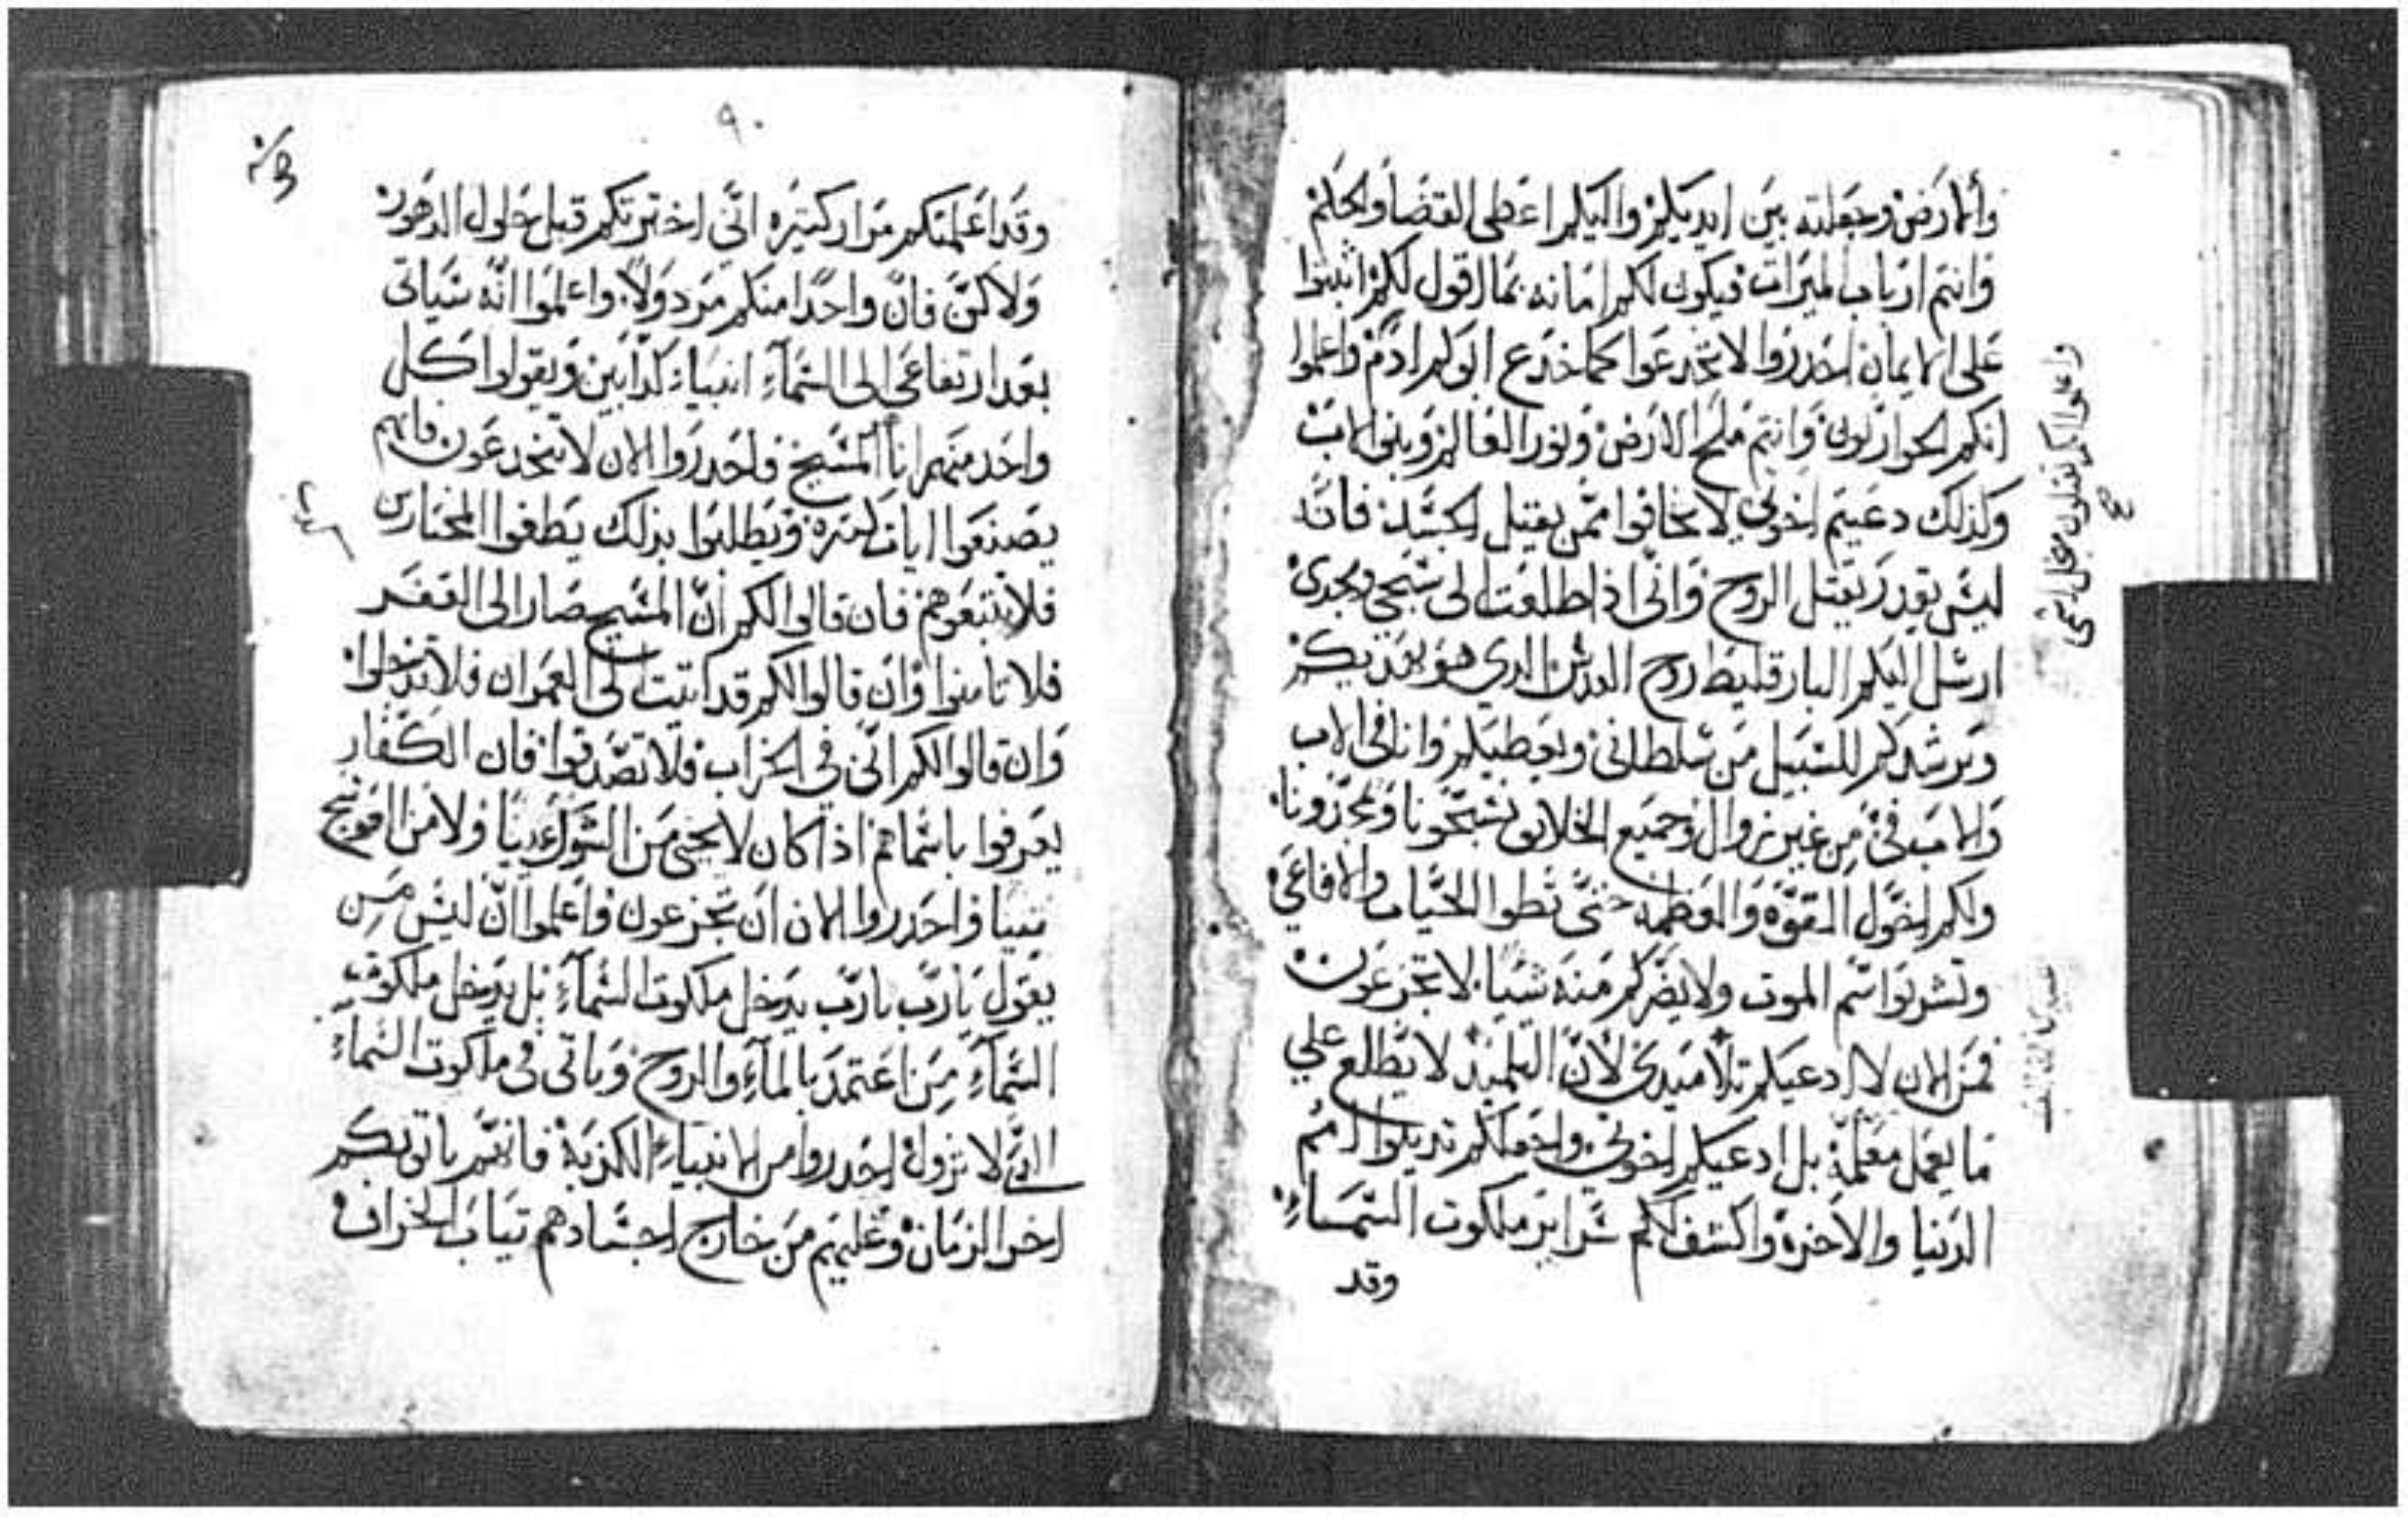 والارض وجعلته بين ايديكم واليكم اعطى القضا والحكم
وانتم ارباب الميرات فيكون لكم امانه بما اقول لكم اثبتوا
على الايمان احدروا لا تنخدعوا كما خدع ابوكم ادم واعلموا
انكم الحواريون وانتم ملح الارض ونور العالم وبنوا الاب
وكذلك دعيتم اخوتي لا تخافوا ممن يقتل الجسد فانه
ليس يقدر يقتل الروح وانى اذا طلعت الى
ارسل اليكم البارقليط روح القدس الدي هو يعزيكم
ويرشدكم للسبيل من سلطانى ويعطيكم وانا فى الاب
والاب فىّ من غير زوال وجميع الخلايق تسبحونا وتمجدونا
ولكم القوه والعظمه حتى تطوا الحيات والافاعي
وتشربوا سم الموت ولا يضركم منه شيا لا تجزعون
فمن الان لا ادعيكم تلاميدى لان التلميذ لا يطلع علي
ما يعمل معلمه بل ادعيكم اخوتي واجعلكم تدينوا امم
الدنيا والاخره واكشف لكم سراير ملكوت السماء
وقد
واعلموا انكم تقتلون من اجل اسمى
صح
٩٠
وقد اعلمتكم مرار كتيره اني اختبرتكم قبل حلول الدهور
ولاكن فان واحدا منكم مردولا واعلموا انه سياتى
بعد ارتفاعى الى السماء انبياء كدابين ويقولوا كل
واحد منهم انا المسيح فاحدروا الان لا تنخدعون فانهم
يصنعوا ايات كتيره ويطلبوا بذلك يطغوا المختارين
فلا تتبعوهم فان قالوا لكم ان المسيح صار الى القفر
فلا تامنوا وان قالوا لكم قد اتيت الى العمران فلا تدخلوا
وان قالوا لكم انى في الخراب فلا تصدقوا فان الكفار
يعرفوا باسماهم اذا كان لا يجنى من الشوك ولا من العوسج
تينا فاحدروا الان ان تجزعون واعلموا ان ليس من
يقول يارب يارب يدخل ملكوت السماء بل يدخل ملكوت
السماء من اعتمد بالماء والروح وياتى فى ملكوت السماء
التي لا تزول احدروا من الانبياء الكذبة فانهم ياتوبكم
اخر الزمان وعليهم من خارج اجسادهم تياب الخراف